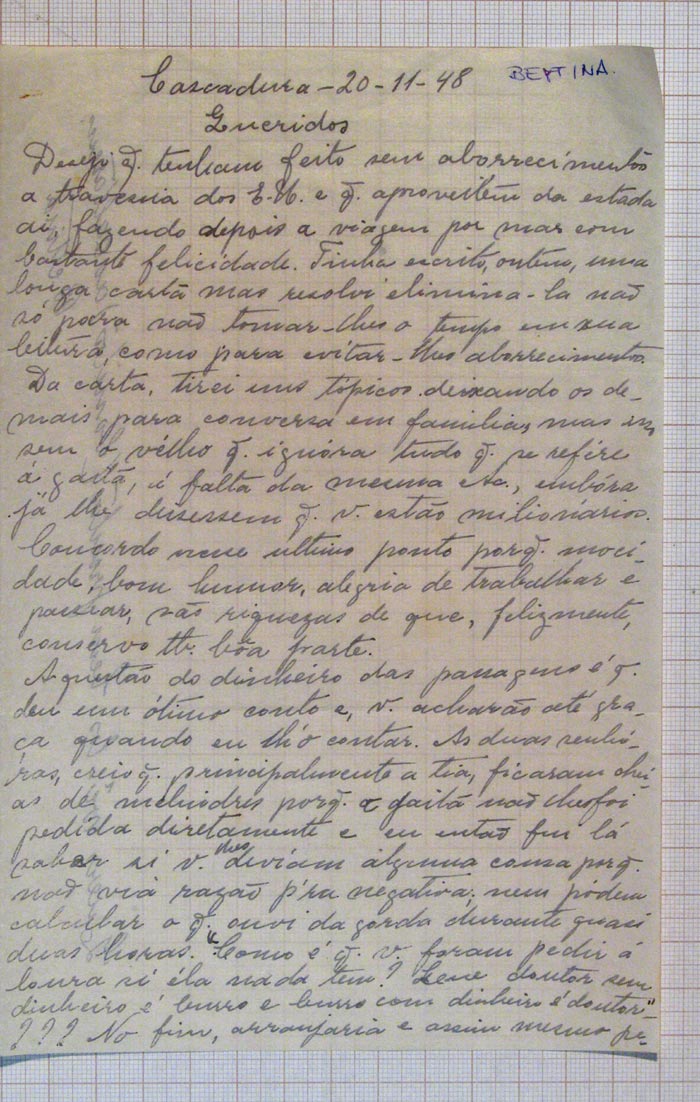 Cascadura - 20-11-48
BERTINA.
Queridos
Desejo q. tenham feito sem aborrecimentos
a travessia dos E.U. e q. aproveitem da estada
ai, fazendo depois a viagem por mar com
bastante felicidade. Tinha escrito, ontem, uma
longa carta mas resolvi elimina-la não
só para não tomar-lhes o tempo em sua
leitura, como para evitar-lhes aborrecimentos.
Da carta, tirei uns tópicos deixando os de-
mais para conversa em familia, mas
sem o vélho q. ignóra tudo q. se refére
á gaita, á falta da mesma etc., embóra
já lhe dissessem q. v. estão milionários.
Concordo nesse ultimo ponto porq. moci-
dade, bom humor, alegria de trabalhar e
passear, são riquezas de que, felizmente,
conservo tb. bôa parte.
A questão do dinheiro das passagens é q.
deu um ótimo conto e, v. acharão até gra-
ça quando eu lh'o contar. As duas senhó-
ras, creio q. principalmente a tia, ficaram chei-
as de melindres porq. a gaita não lhes foi
pedida diretamente e eu então fui lá
saber si v. lhes deviam alguma cousa porq.
não via razão p'ra negativa; nem pódem
calcular o q. ouvi da gorda durante quasi
duas horas. "Como é q. v. foram pedir á
loura si éla nada tem? doutor sem
dinheiro é burro e burro com dinheiro é doutor"
??? No fim, arranjaria e assim mesmo pe-